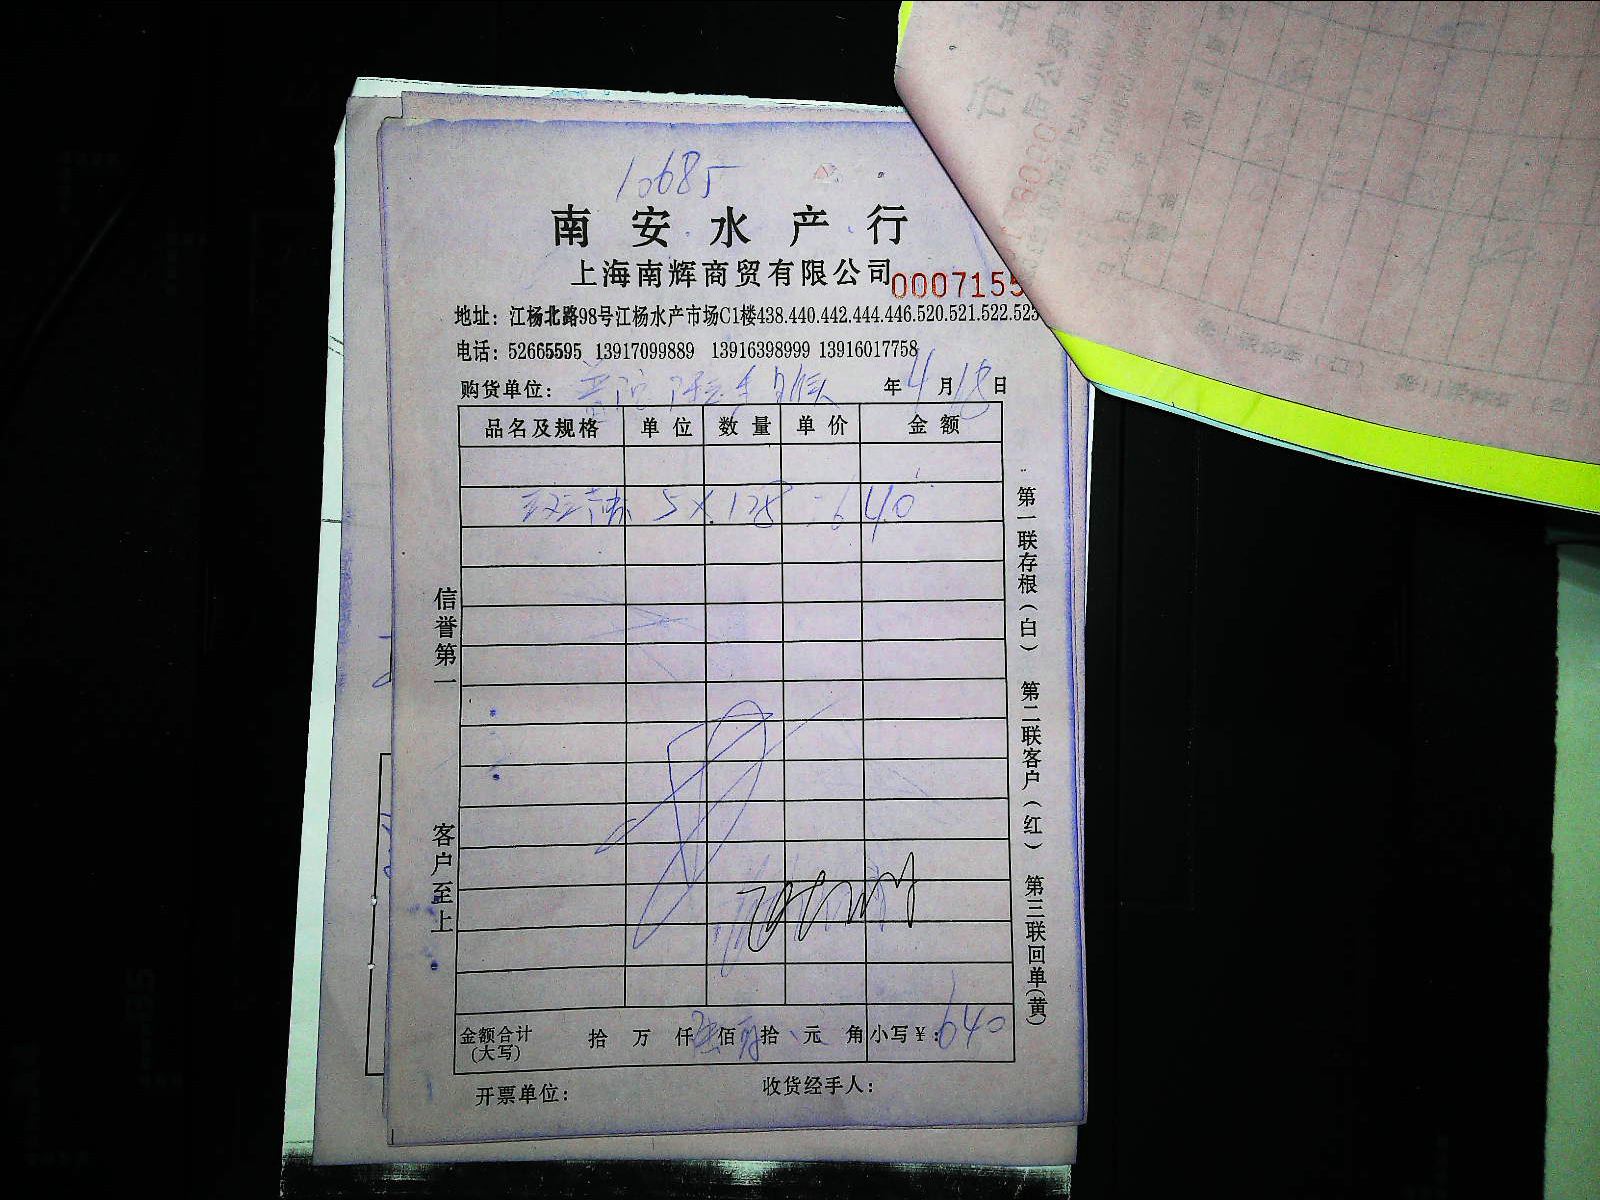 10685
南安水产行
上海南辉商贸有限公司 0007155
地址：江杨北路98号江杨水产市场C1楼438.440.442.444.446.520.521.522.523
电话：52665595 13917099889 13916398999 13916017758
购货单位： 年4月18日
品名及规格 单位 数量 单价 金额
5×128=640
信誉第一
客户至上
第一联存根（白） 第二联客户（红） 第三联回单（黄）
金额合计（大写） 拾 万 仟 陆 佰 肆 拾 元 角 小写￥：640
开票单位： 收货经手人：